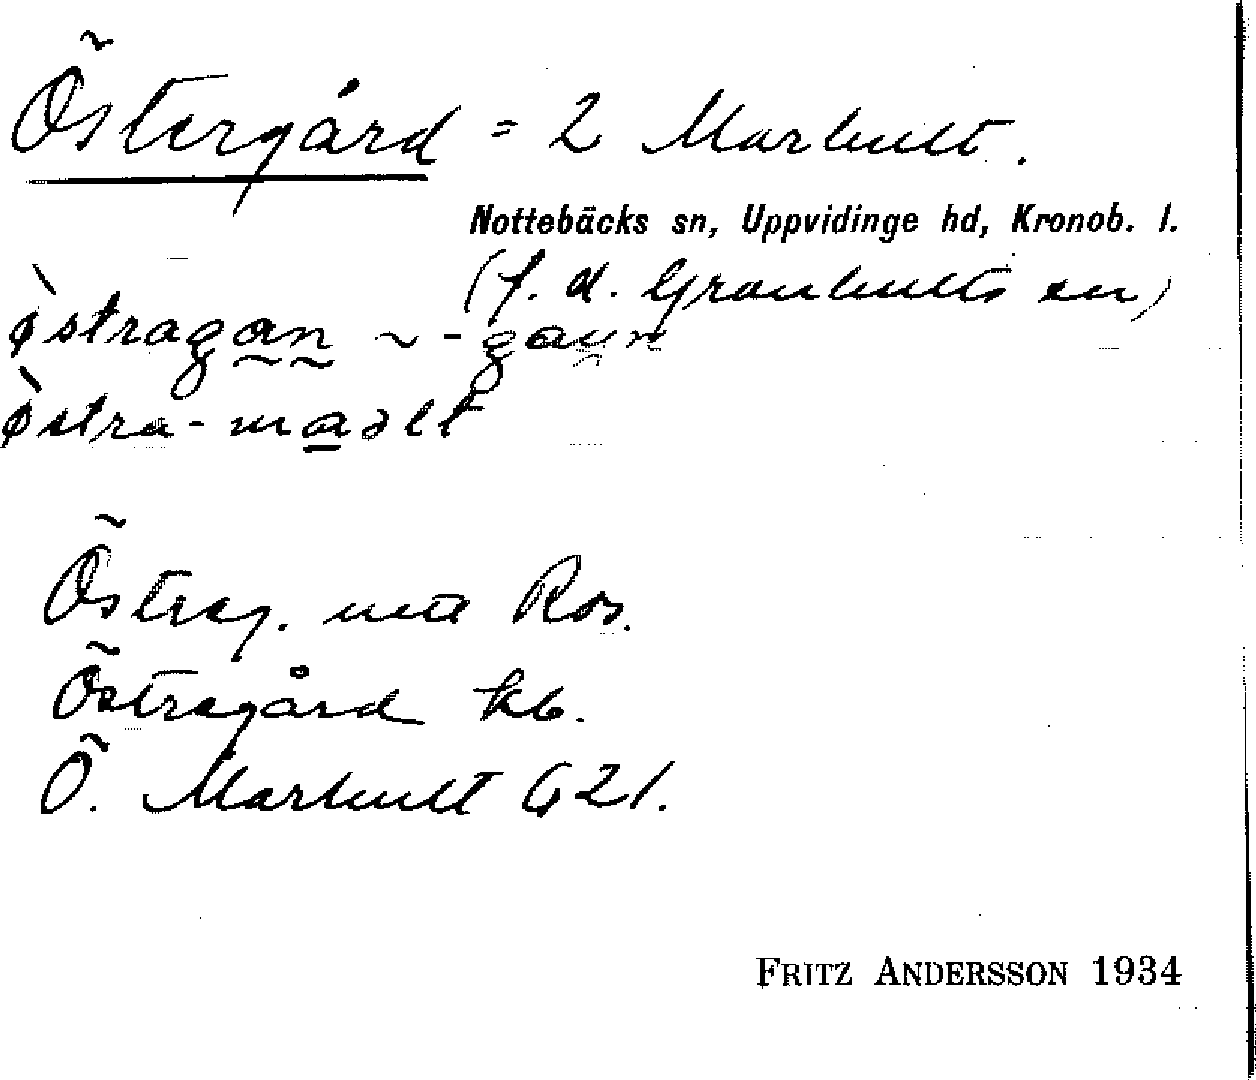 Östergård = 2 Marhult.
Nottebäcks sn, Uppvidinge hd, Kronob. l.
(f. d. Granhults sn)
östragan ~ -gaun
östra-maɔlt
Österg. Ros.
Östregård kb.
Ö. Marhult G21.
FRITZ ANDERSSON 1934